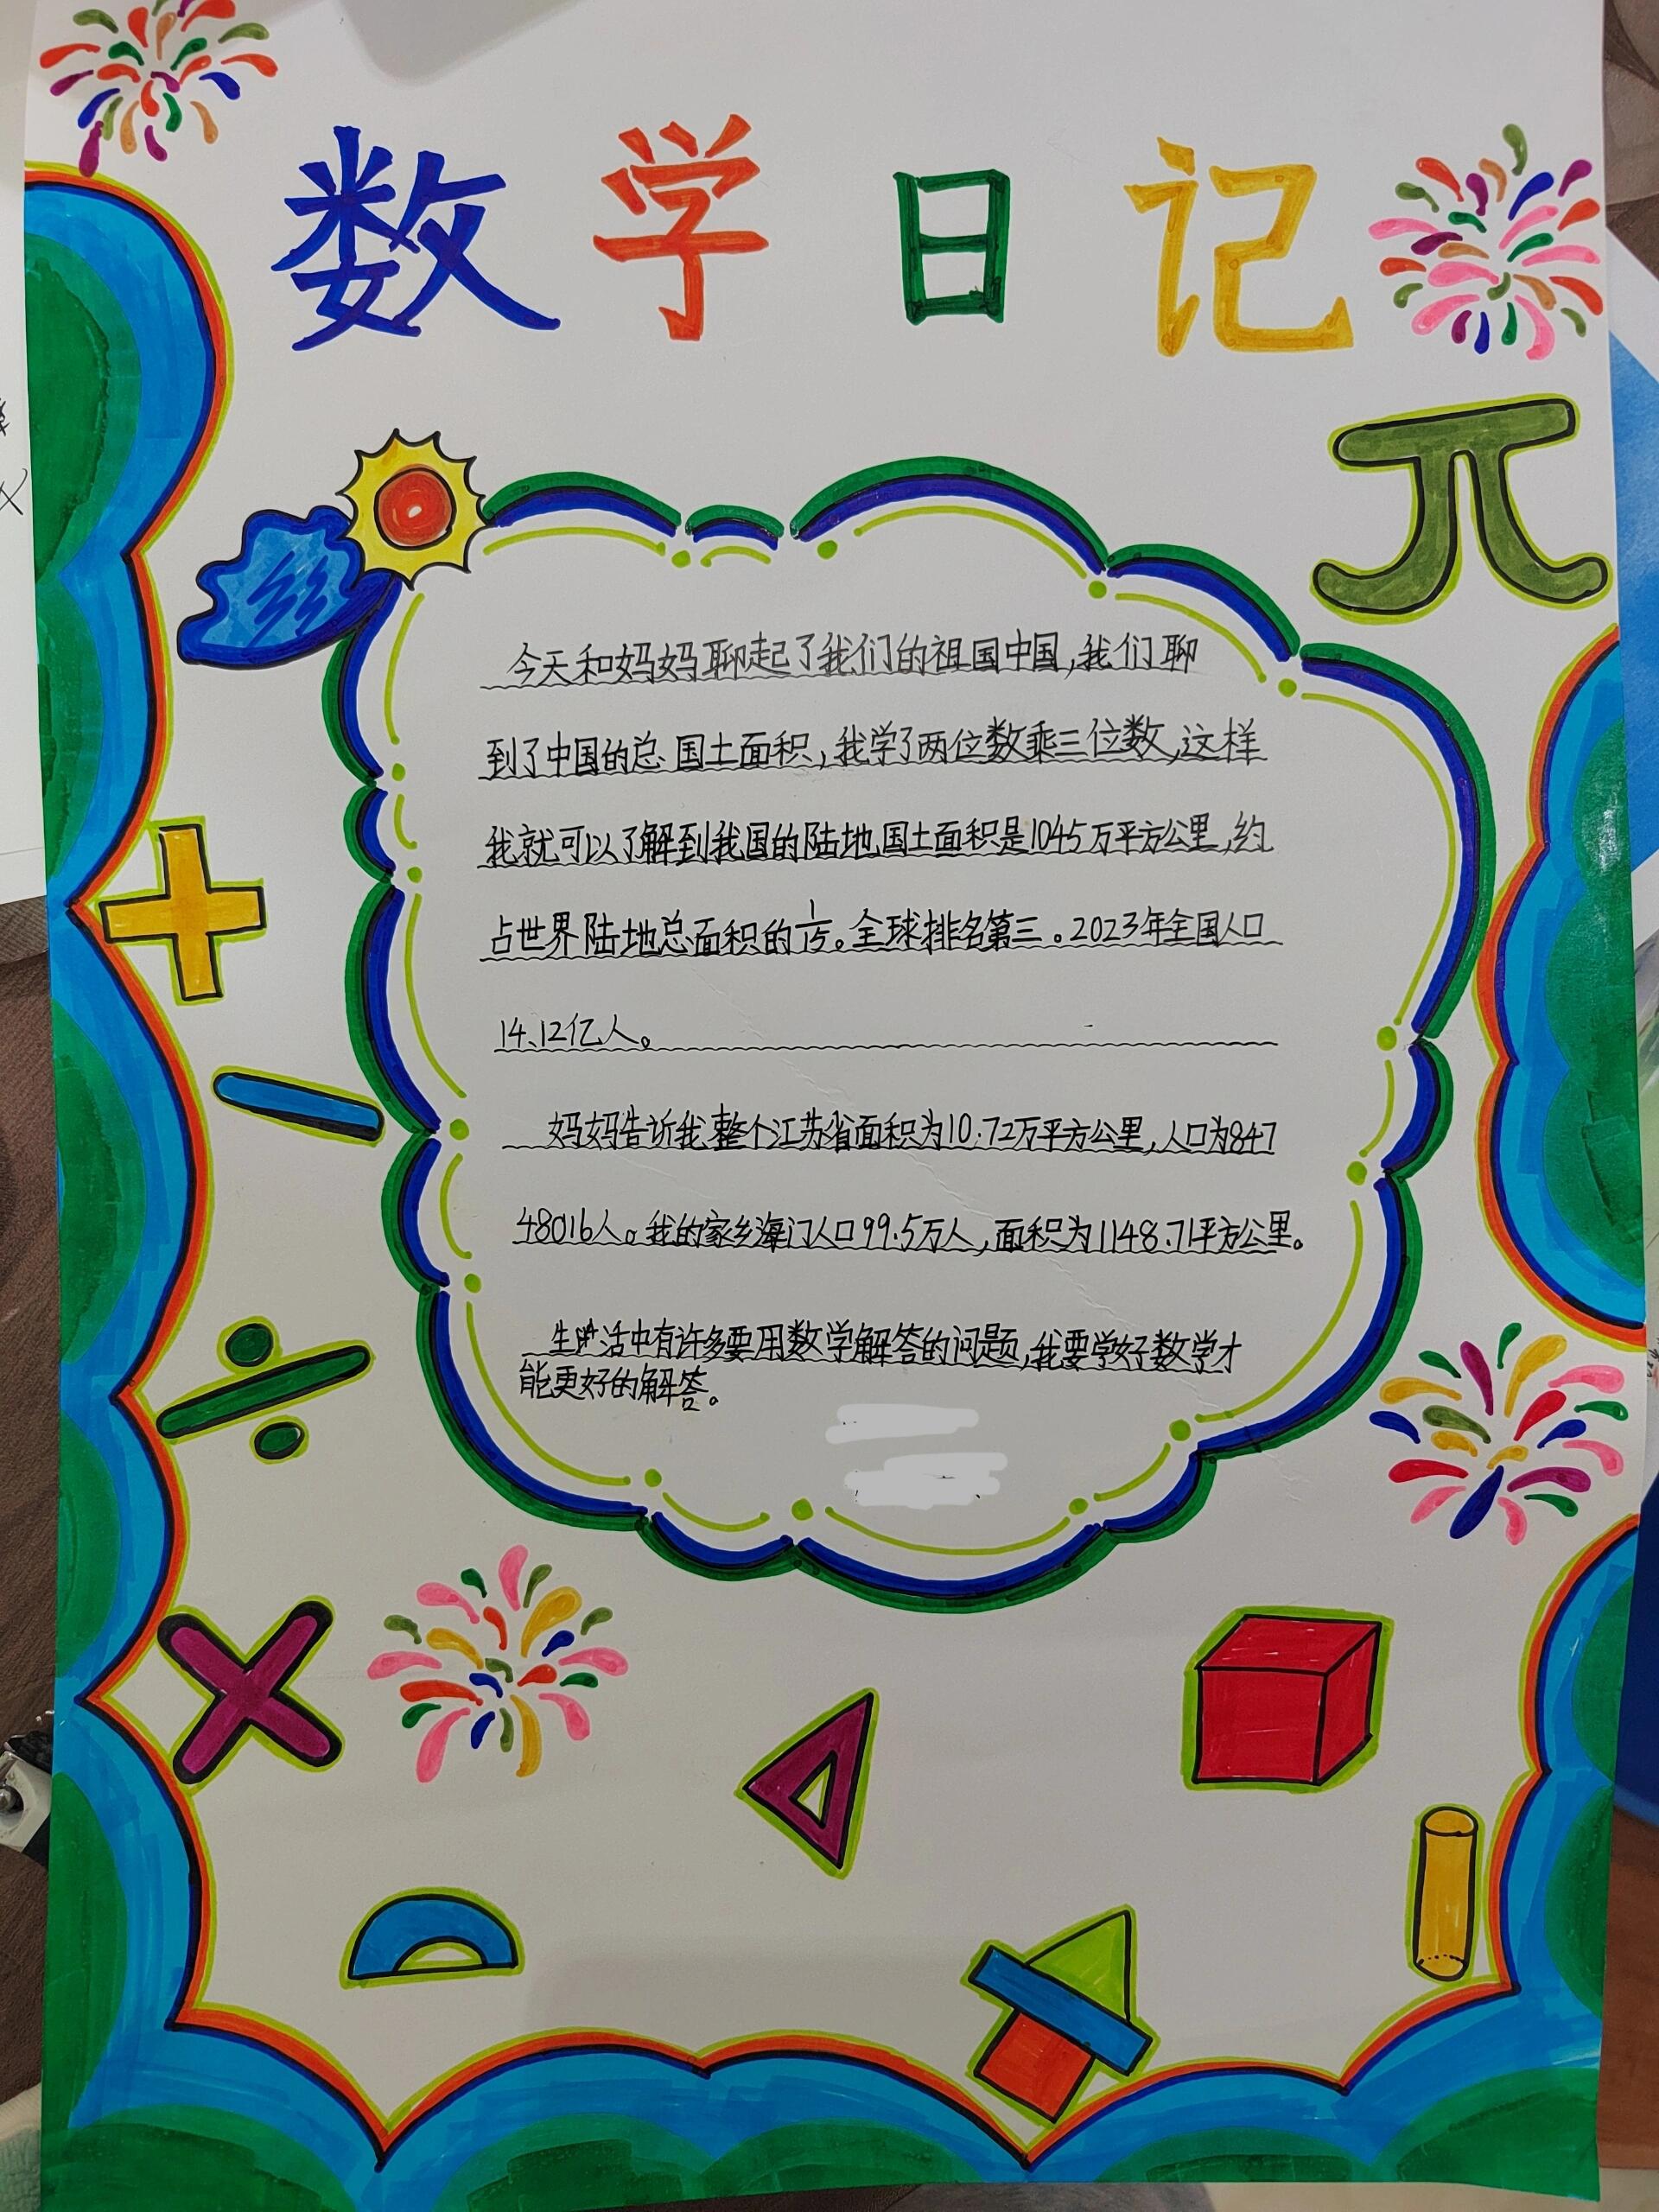 数学日记
今天和妈妈聊起了我们的祖国中国,我们聊
到了中国的总国土面积,我学了两位数乘三位数,这样
我就可以了解到我国的陆地国土面积是1045万平方公里,约
占世界陆地总面积的1/15。全球排名第三。2023年全国人口
14.12亿人。
妈妈告诉我整个江苏省面积为10.72万平方公里,人口为847
48016人。我的家乡海门人口99.5万人,面积为1148.71平方公里。
生活中有许多要用数学解答的问题,我要学好数学才
能更好的解答。
π